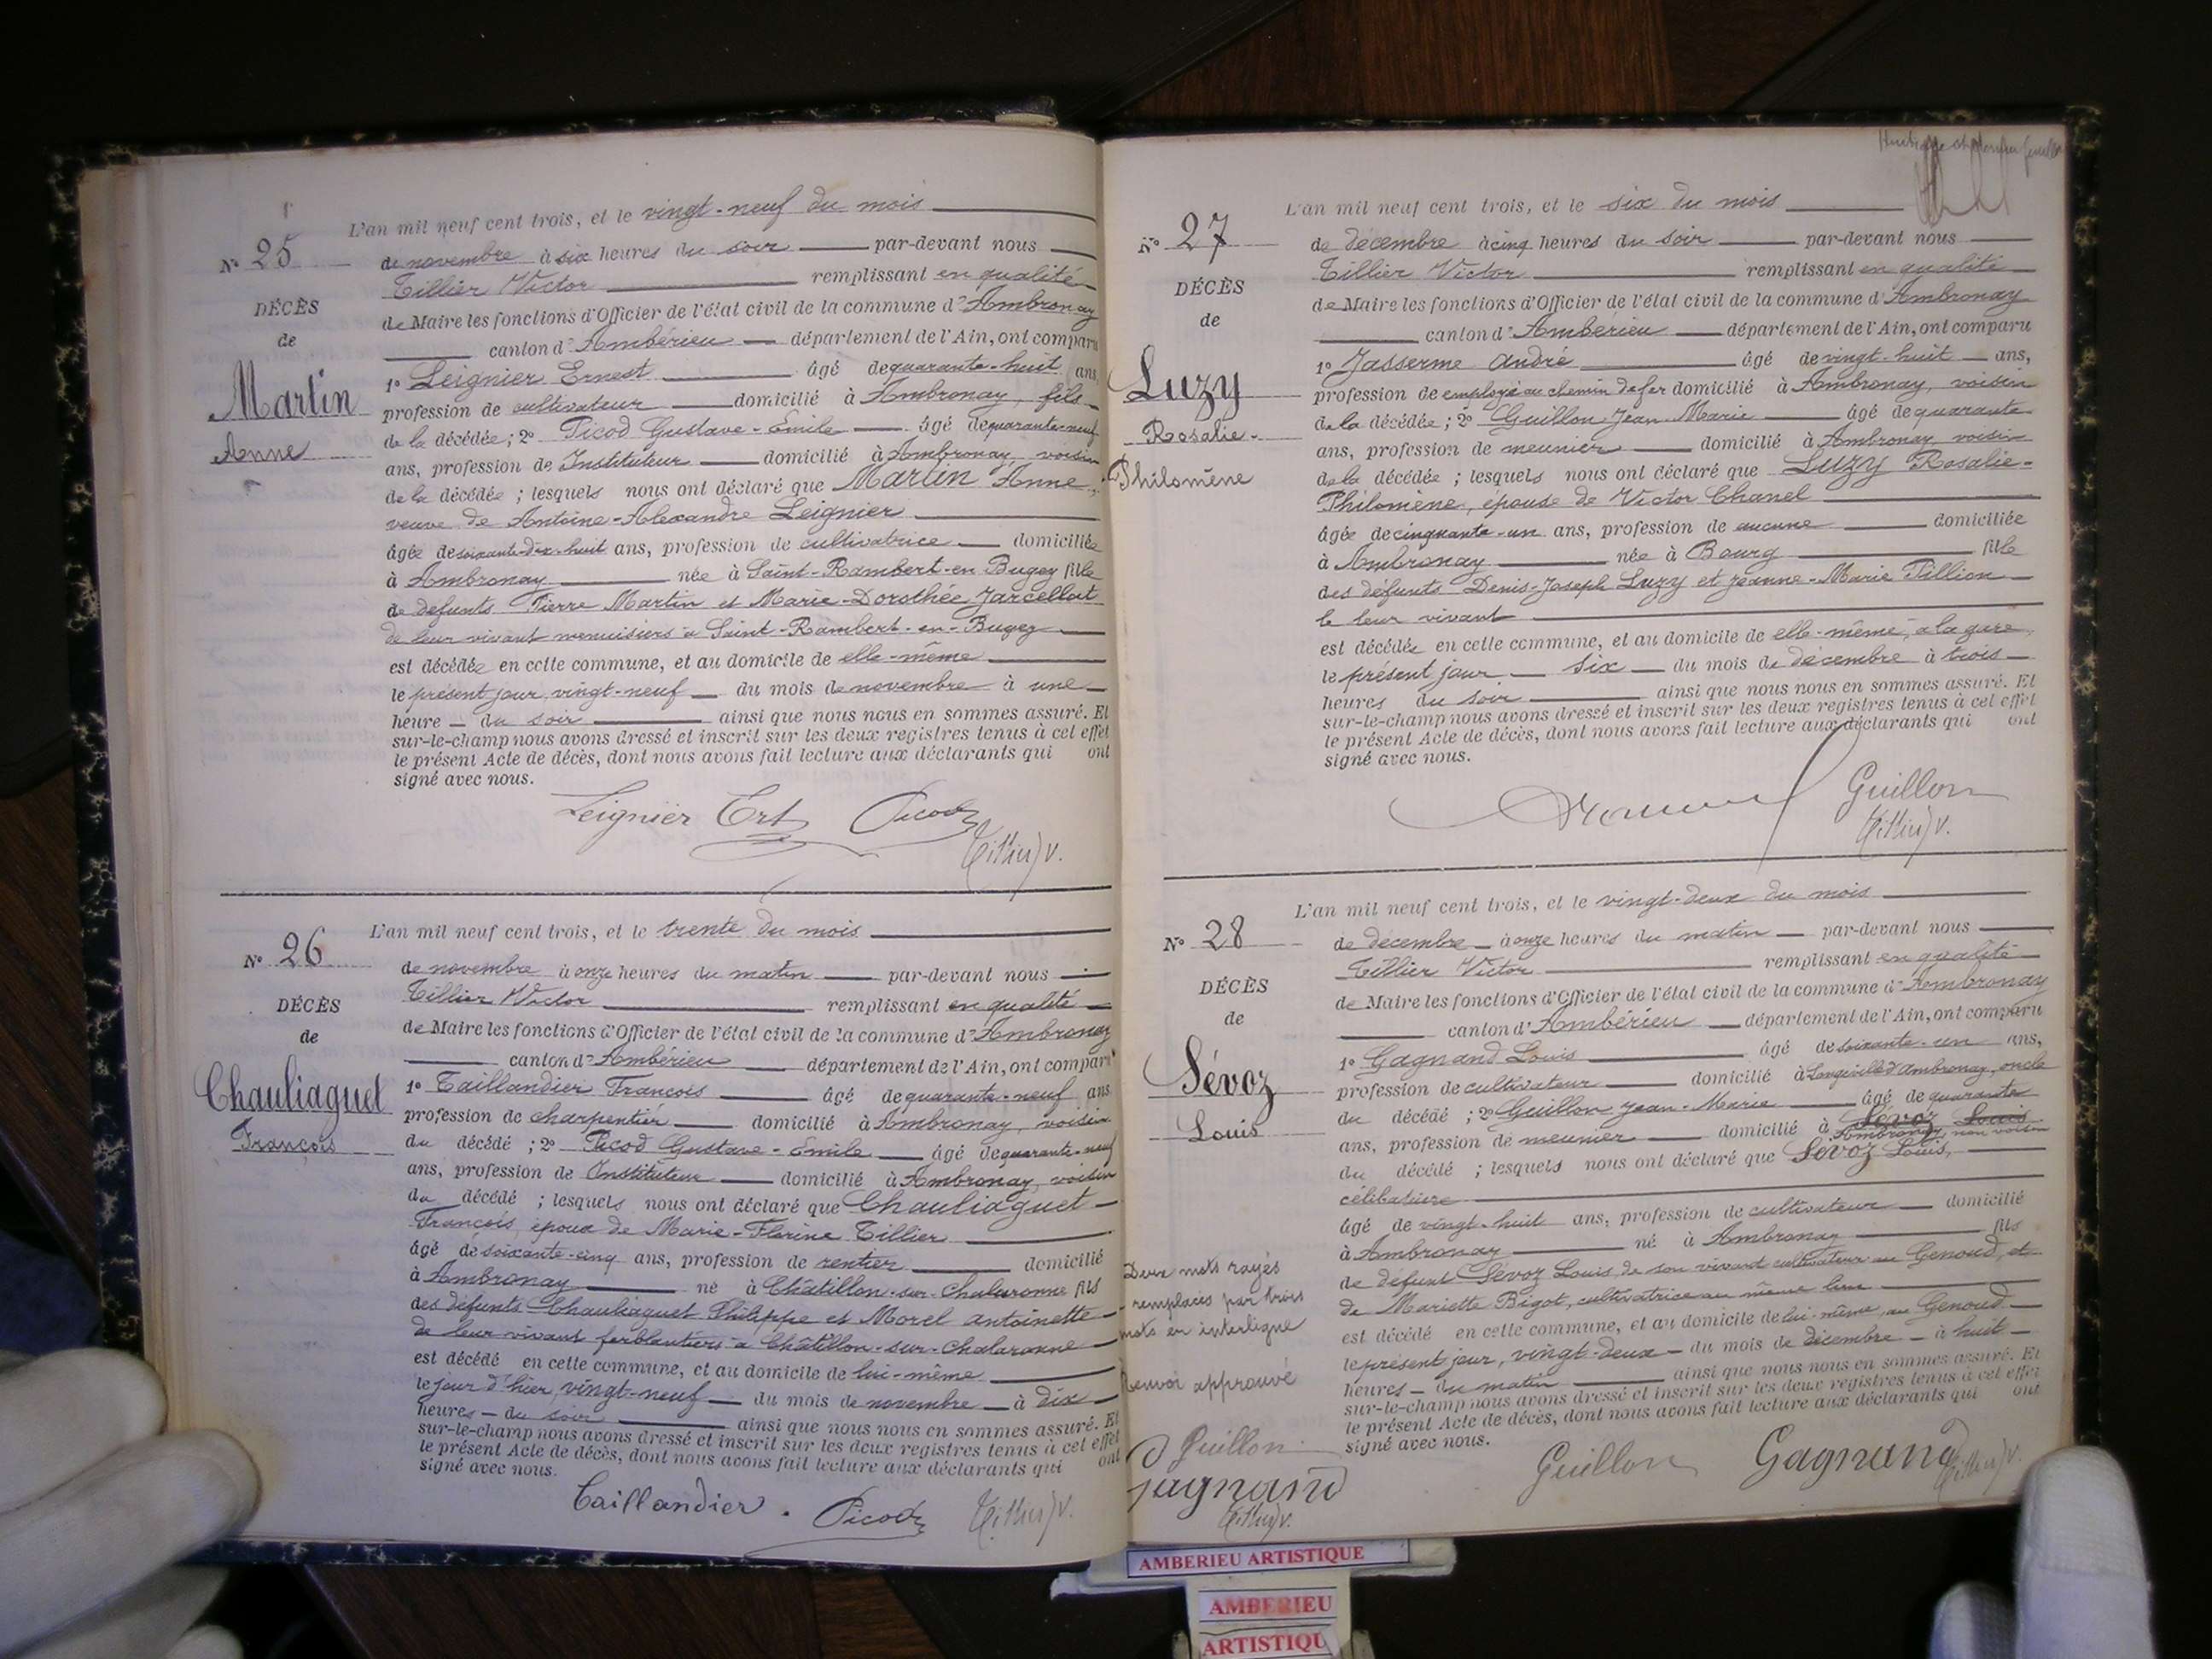 L'an mil neuf cent trois, et le vingt-neuf du mois
N° 25
de novembre à six heures du soir par-devant nous
Tillier Victor remplissant en qualité
DÉCÈS
de Maire les fonctions d'Officier de l'état civil de la commune d'Ambronay
de
canton d'Ambérieu département de l'Ain, ont comparu
1° Leignier Ernest âgé de quarante-huit ans,
Martin
profession de cultivateur domicilié à Ambronay, fils
de la décédée ; 2° Picod Gustave-Emile âgé de quarante-neuf
Anne
ans, profession de Instituteur domicilié à Ambronay, voisin
de la décédée ; lesquels nous ont déclaré que Martin Anne,
veuve de Antoine-Alexandre Leignier
âgée de soixante-dix-huit ans, profession de cultivatrice domiciliée
à Ambronay née à Saint-Rambert-en Bugey fille
de defunts Pierre Martin et Marie-Dorothée Jarcellat
de leur vivant menuisiers à Saint-Rambert-en-Bugey
est décédée en cette commune, et au domicile de elle-même
le présent jour, vingt-neuf du mois de novembre à une
heure du soir ainsi que nous nous en sommes assuré. Et
sur-le-champ nous avons dressé et inscrit sur les deux registres tenus à cet effet
le présent Acte de décès, dont nous avons fait lecture aux déclarants qui ont
signé avec nous.
Leignier Ert Picod
Tillier V.
L'an mil neuf cent trois, et le trente du mois
N° 26
de novembre à onze heures du matin par-devant nous
Tillier Victor remplissant en qualité
DÉCÈS
de Maire les fonctions d'Officier de l'état civil de la commune d'Ambronay
de
canton d'Ambérieu département de l'Ain, ont comparu
Chauliaguet
1° Taillandier François âgé de quarante-neuf ans
profession de charpentier domicilié à Ambronay, voisin
François
du décédé ; 2° Picod Gustave-Emile âgé de quarante-neuf
ans, profession de Instituteur domicilié à Ambronay, voisin
du décédé ; lesquels nous ont déclaré que Chauliaguet
François, époux de Marie-Florine Tillier
âgé de soixante-cinq ans, profession de rentier domicilié
à Ambronay né à Châtillon-sur-Chalaronne fils
des défunts Chauliaguet Philippe et Morel antoinette
de leur vivant ferblantiers à Châtillon-sur-Chalaronne
est décédé en cette commune, et au domicile de lui-même
le jour d'hier, vingt-neuf du mois de novembre à dix
heures du soir ainsi que nous nous en sommes assuré. Et
sur-le-champ nous avons dressé et inscrit sur les deux registres tenus à cet effet
le présent Acte de décès, dont nous avons fait lecture aux déclarants qui ont
signé avec nous.
Taillandier. Picod Tillier V.
L'an mil neuf cent trois, et le six du mois
N° 27
de décembre à cinq heures du soir par-devant nous
Tillier Victor remplissant en qualité
DÉCÈS
de Maire les fonctions d'Officier de l'état civil de la commune d'Ambronay
de
canton d'Ambérieu département de l'Ain, ont comparu
1° Jasserme André âgé de vingt-huit ans,
Luzy
profession de employé au chemin de fer domicilié à Ambronay, voisin
de la décédée ; 2° Guillon Jean-Marie âgé de quarante
Rosalie-
ans, profession de meunier domicilié à Ambronay, voisin
Philomène
de la décédée ; lesquels nous ont déclaré que Luzy Rosalie-
Philomène, épouse de Victor Chanel
âgée de cinquante-un ans, profession de aucune domiciliée
à Ambronay née à Bourg fille
des défunts Denis-Joseph Luzy et Jeanne-Marie Pillion
le leur vivant
est décédée en cette commune, et au domicile de elle-même, à la gare,
le présent jour six du mois de décembre à trois
heures du soir ainsi que nous nous en sommes assuré. Et
sur-le-champ nous avons dressé et inscrit sur les deux registres tenus à cet effet
le présent Acte de décès, dont nous avons fait lecture aux déclarants qui ont
signé avec nous.
Guillon
Tillier V.
L'an mil neuf cent trois, et le vingt-deux du mois
N° 28
de décembre à onze heures du matin par-devant nous
Tillier Victor remplissant en qualité
DÉCÈS
de Maire les fonctions d'Officier de l'état civil de la commune d'Ambronay
de
canton d'Ambérieu département de l'Ain, ont comparu
1° Gagnand Louis âgé de soixante-un ans,
Sévoz
profession de cultivateur domicilié à Longeville d'Ambronay, oncle
du décédé ; 2° Guillon Jean-Marie âgé de quarante
Louis
ans, profession de meunier domicilié à Sévoz Louis
Ambronay, non voisin
du décédé ; lesquels nous ont déclaré que Sévoz Louis,
célibataire
âgé de vingt-huit ans, profession de cultivateur domicilié
à Ambronay né à Ambronay fils
de défunt Sévoz Louis, de son vivant cultivateur au Genoud, et
de Mariette Bigot, cultivatrice au même lieu
est décédé en cette commune, et au domicile de lui-même, au Genoud
le présent jour, vingt-deux du mois de décembre à huit
heures du matin ainsi que nous nous en sommes assuré. Et
sur-le-champ nous avons dressé et inscrit sur les deux registres tenus à cet effet
le présent Acte de décès, dont nous avons fait lecture aux déclarants qui ont
signé avec nous.
Deux mots rayés
remplacés par trois
mots en interligne
Renvoi approuvé
Guillon
Gagnand
Tillier V.
Guillon Gagnand Tillier V.
AMBERIEU ARTISTIQUE
AMBERIEU
ARTISTIQU